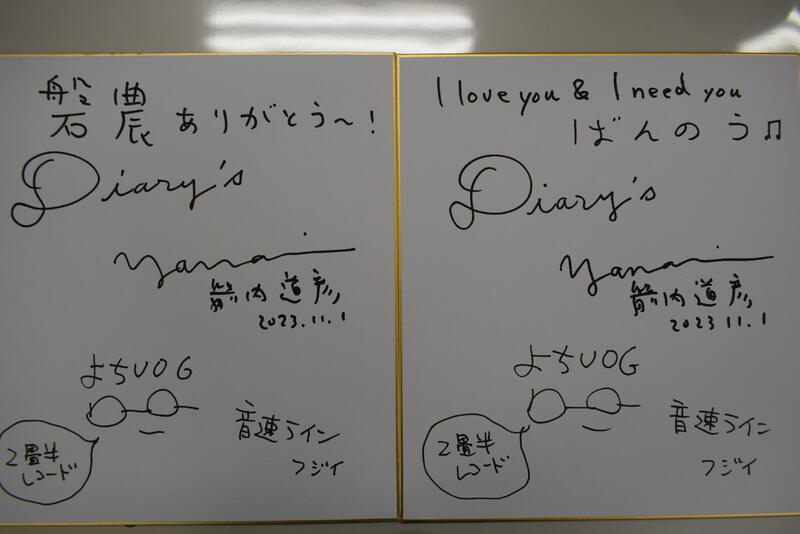 磐農ありがとう〜!
Diary's
yanai
箭内道彦
2023.11.1
よちUOG
2畳半
レコード
音速ライン
フジイ
I love you & I need you
ばんのう♫
Diary's
yanai
箭内道彦
2023.11.1
よちUOG
2畳半
レコード
音速ライン
フジイ